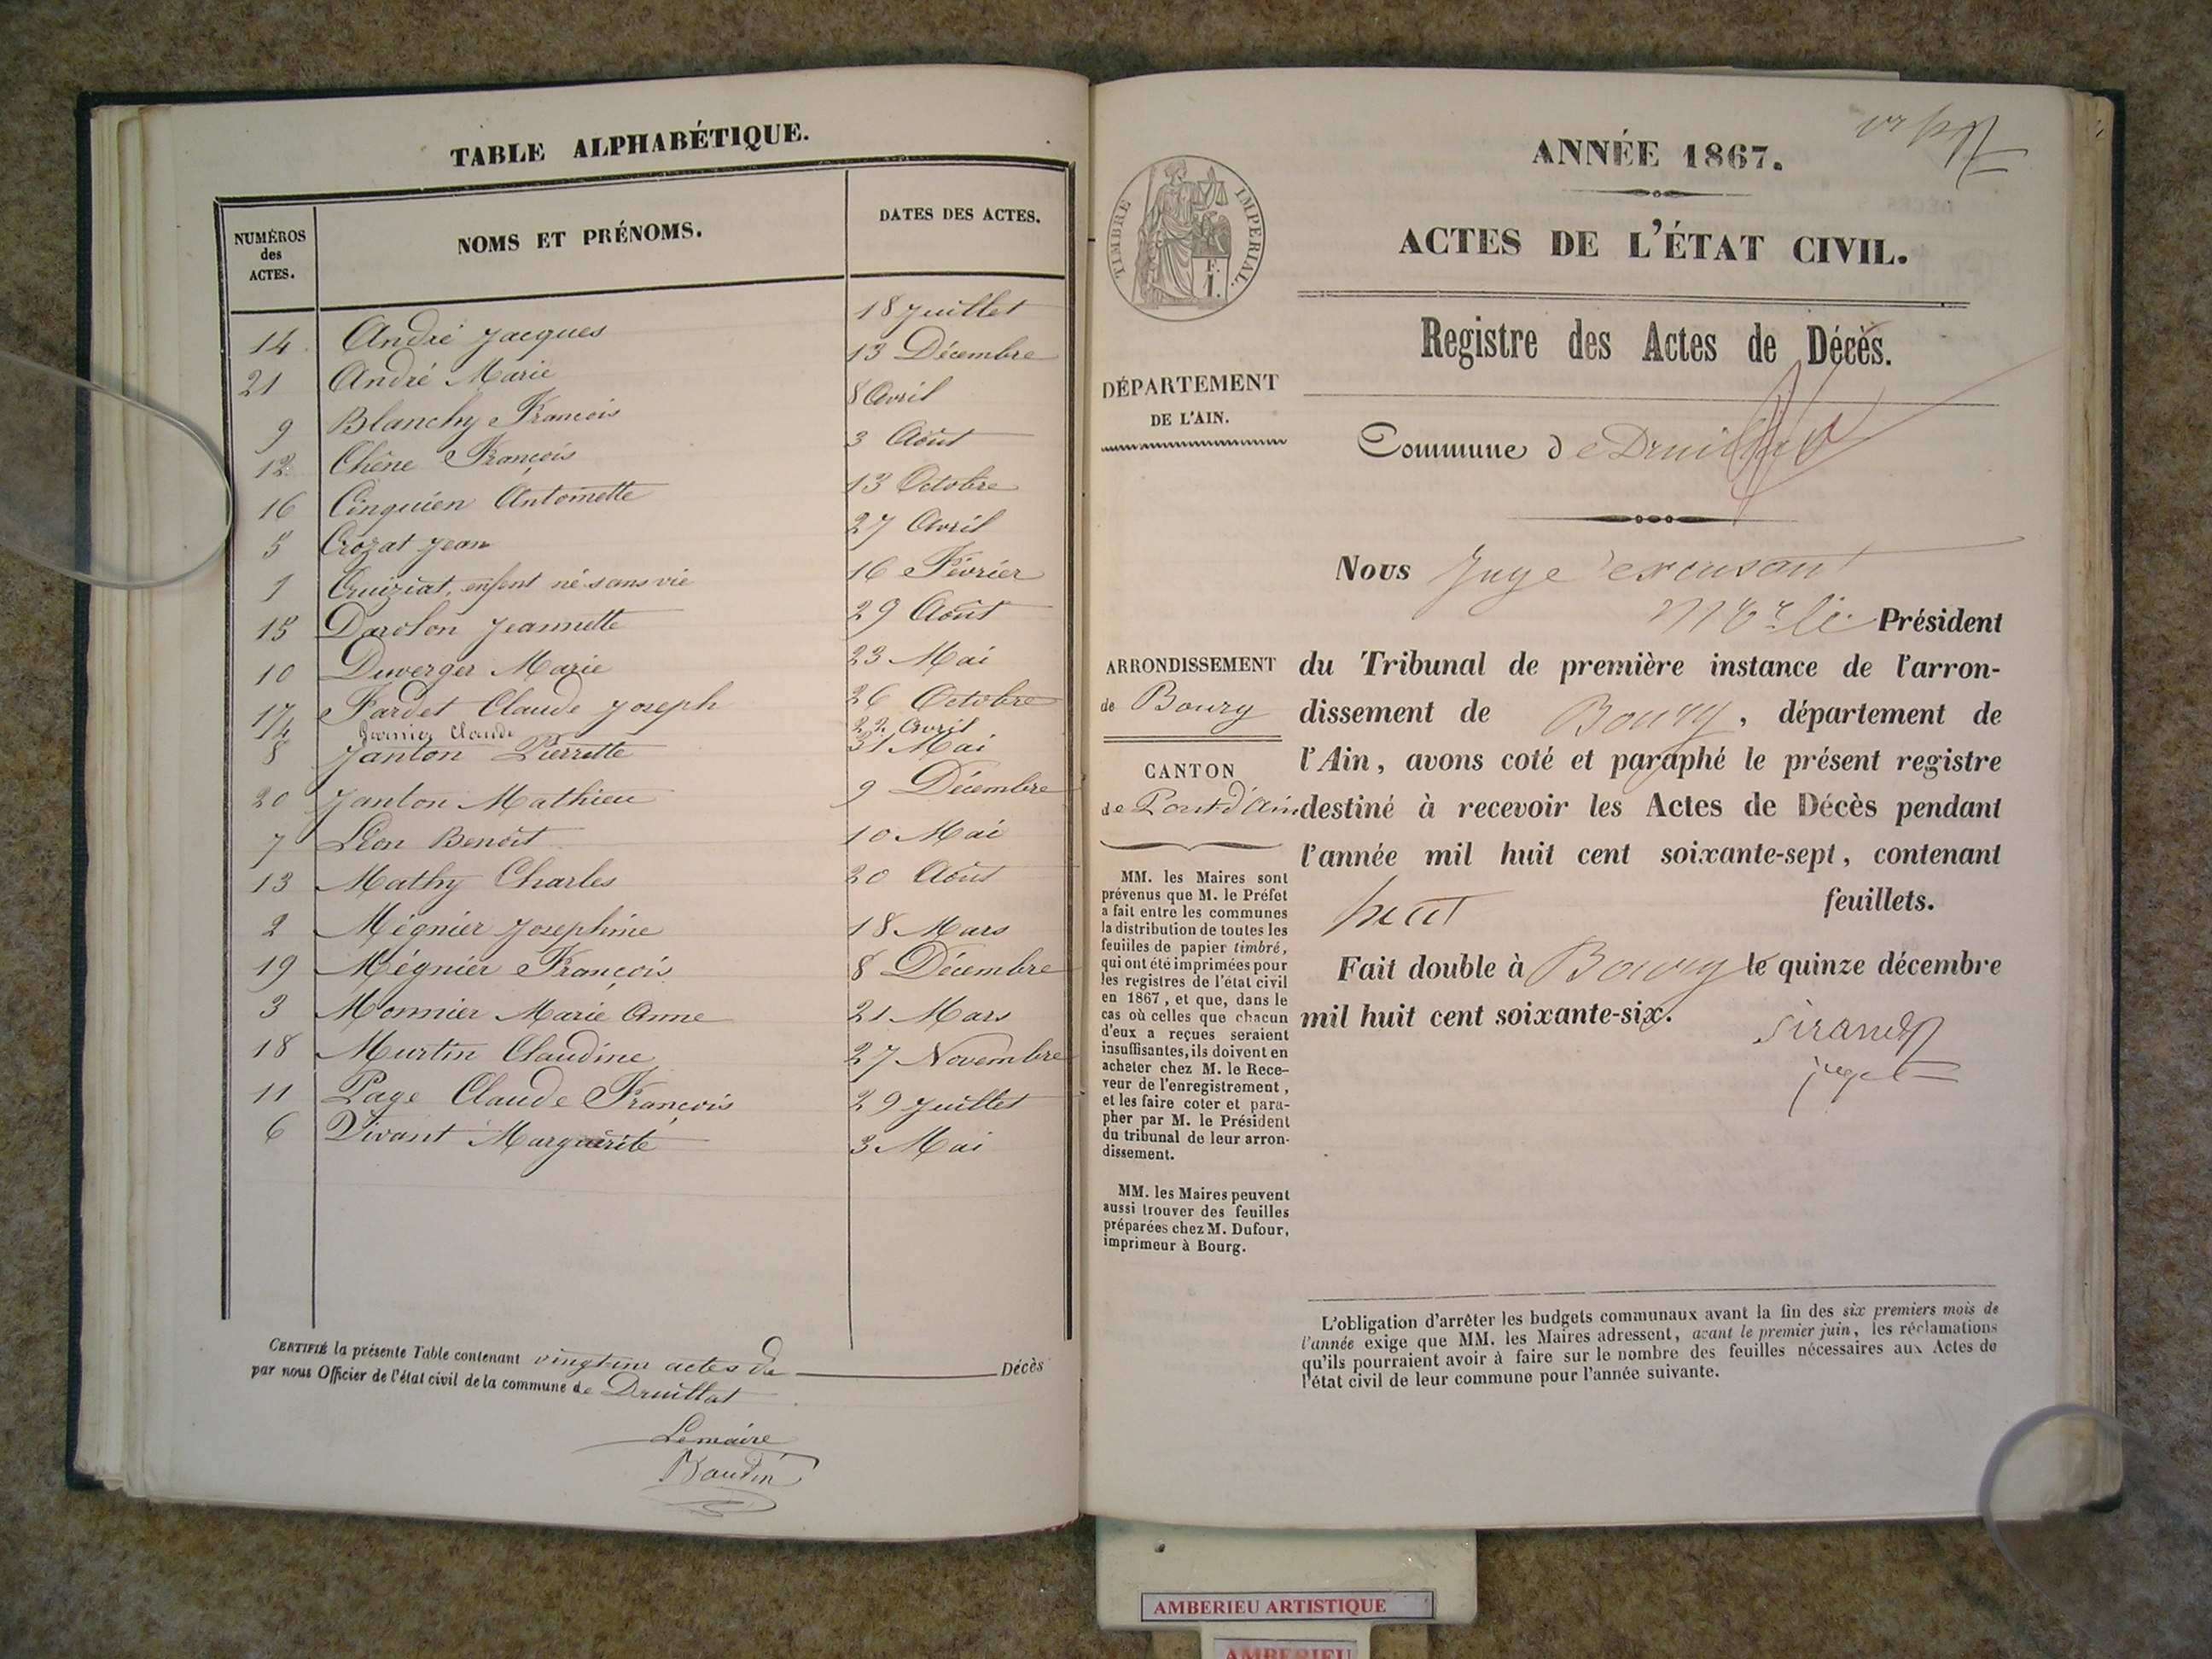 TABLE ALPHABÉTIQUE.
NUMÉROS
des
ACTES.
NOMS ET PRÉNOMS.
DATES DES ACTES.
14 André Jacques 18 Juillet
21 André Marie 13 Décembre
9 Blanchy François 8 Avril
12 Chêne François 3 Août
16 Cinquien Antoinette 13 Octobre
5 Crozat Jean 27 Avril
1 Cruiziat, enfent né sans vie 16 Février
15 Darolon Jeannette 29 Août
10 Duverger Marie 23 Mai
17 Fardet Claude Joseph 26 Octobre
4 Garnier Claude 22 Avril
8 Janton Pierrette 31 Mai
20 Janton Mathieu 9 Décembre
7 Léon Benoît 10 Mai
13 Mathy Charles 20 Août
2 Mégnier Josephine 18 Mars
19 Mégnier François 8 Décembre
3 Monnier Marie Anne 21 Mars
18 Murtin Claudine 27 Novembre
11 Page Claude François 29 Juillet
6 Vivant Marguerite 3 Mai
CERTIFIÉ la présente Table contenant vingt un actes de Décès
par nous Officier de l'état civil de la commune de Druillat
Lemaire
Baudin
ANNÉE 1867.
ACTES DE L'ÉTAT CIVIL.
TIMBRE IMPERIAL.
Registre des Actes de Décès.
DÉPARTEMENT
DE L'AIN.
Commune de Druillat
Nous Juge
Président
ARRONDISSEMENT
de Bourg
CANTON
de Pont d'Ain
du Tribunal de première instance de l'arron-
dissement de Bourg, département de
l'Ain, avons coté et paraphé le présent registre
destiné à recevoir les Actes de Décès pendant
l'année mil huit cent soixante-sept, contenant
huit feuillets.
Fait double à Bourg le quinze décembre
mil huit cent soixante-six.
juge
MM. les Maires sont
prévenus que M. le Préfet
a fait entre les communes
la distribution de toutes les
feuilles de papier timbré,
qui ont été imprimées pour
les registres de l'état civil
en 1867, et que, dans le
cas où celles que chacun
d'eux a reçues seraient
insuffisantes, ils doivent en
acheter chez M. le Rece-
veur de l'enregistrement,
et les faire coter et para-
pher par M. le Président
du tribunal de leur arron-
dissement.
MM. les Maires peuvent
aussi trouver des feuilles
préparées chez M. Dufour,
imprimeur à Bourg.
L'obligation d'arrêter les budgets communaux avant la fin des six premiers mois de
l'année exige que MM. les Maires adressent, avant le premier juin, les réclamations
qu'ils pourraient avoir à faire sur le nombre des feuilles nécessaires aux Actes de
l'état civil de leur commune pour l'année suivante.
AMBERIEU ARTISTIQUE
AMBERIEU